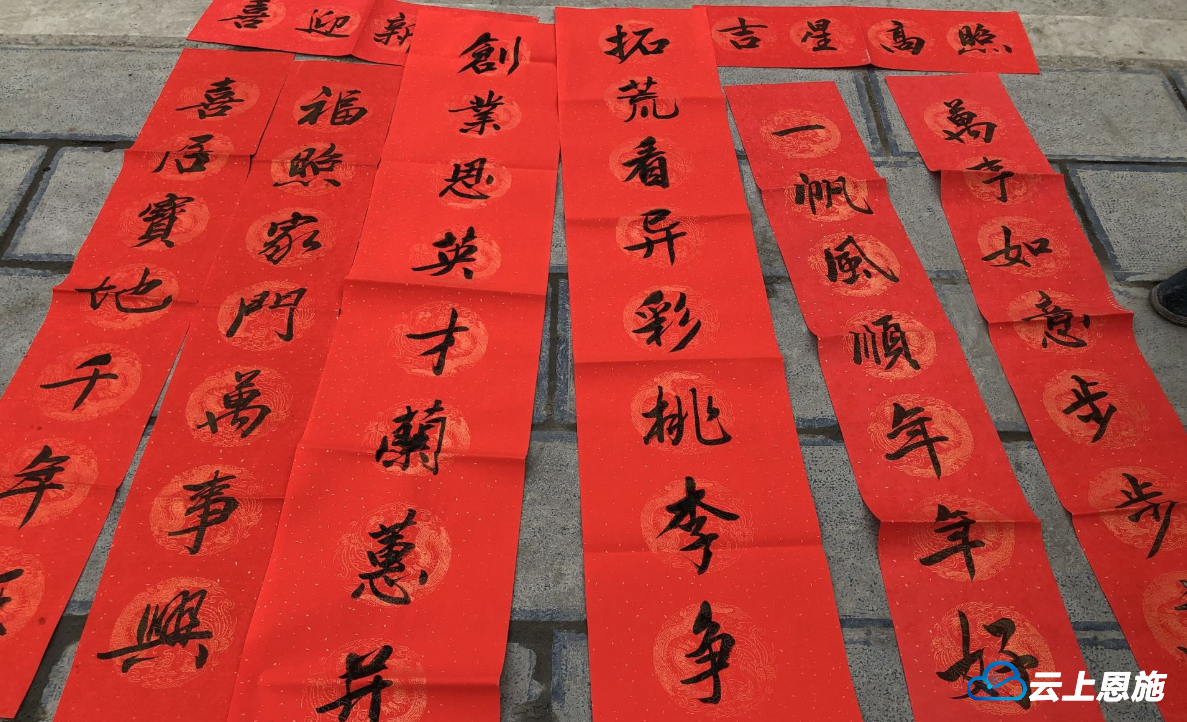 喜迎新
吉星高照
喜居寶地千年
福照家門萬事興
創業思英才蘭蕙并
拓荒看异彩桃李争
一帆風順年年好
萬事如意步步
云上恩施